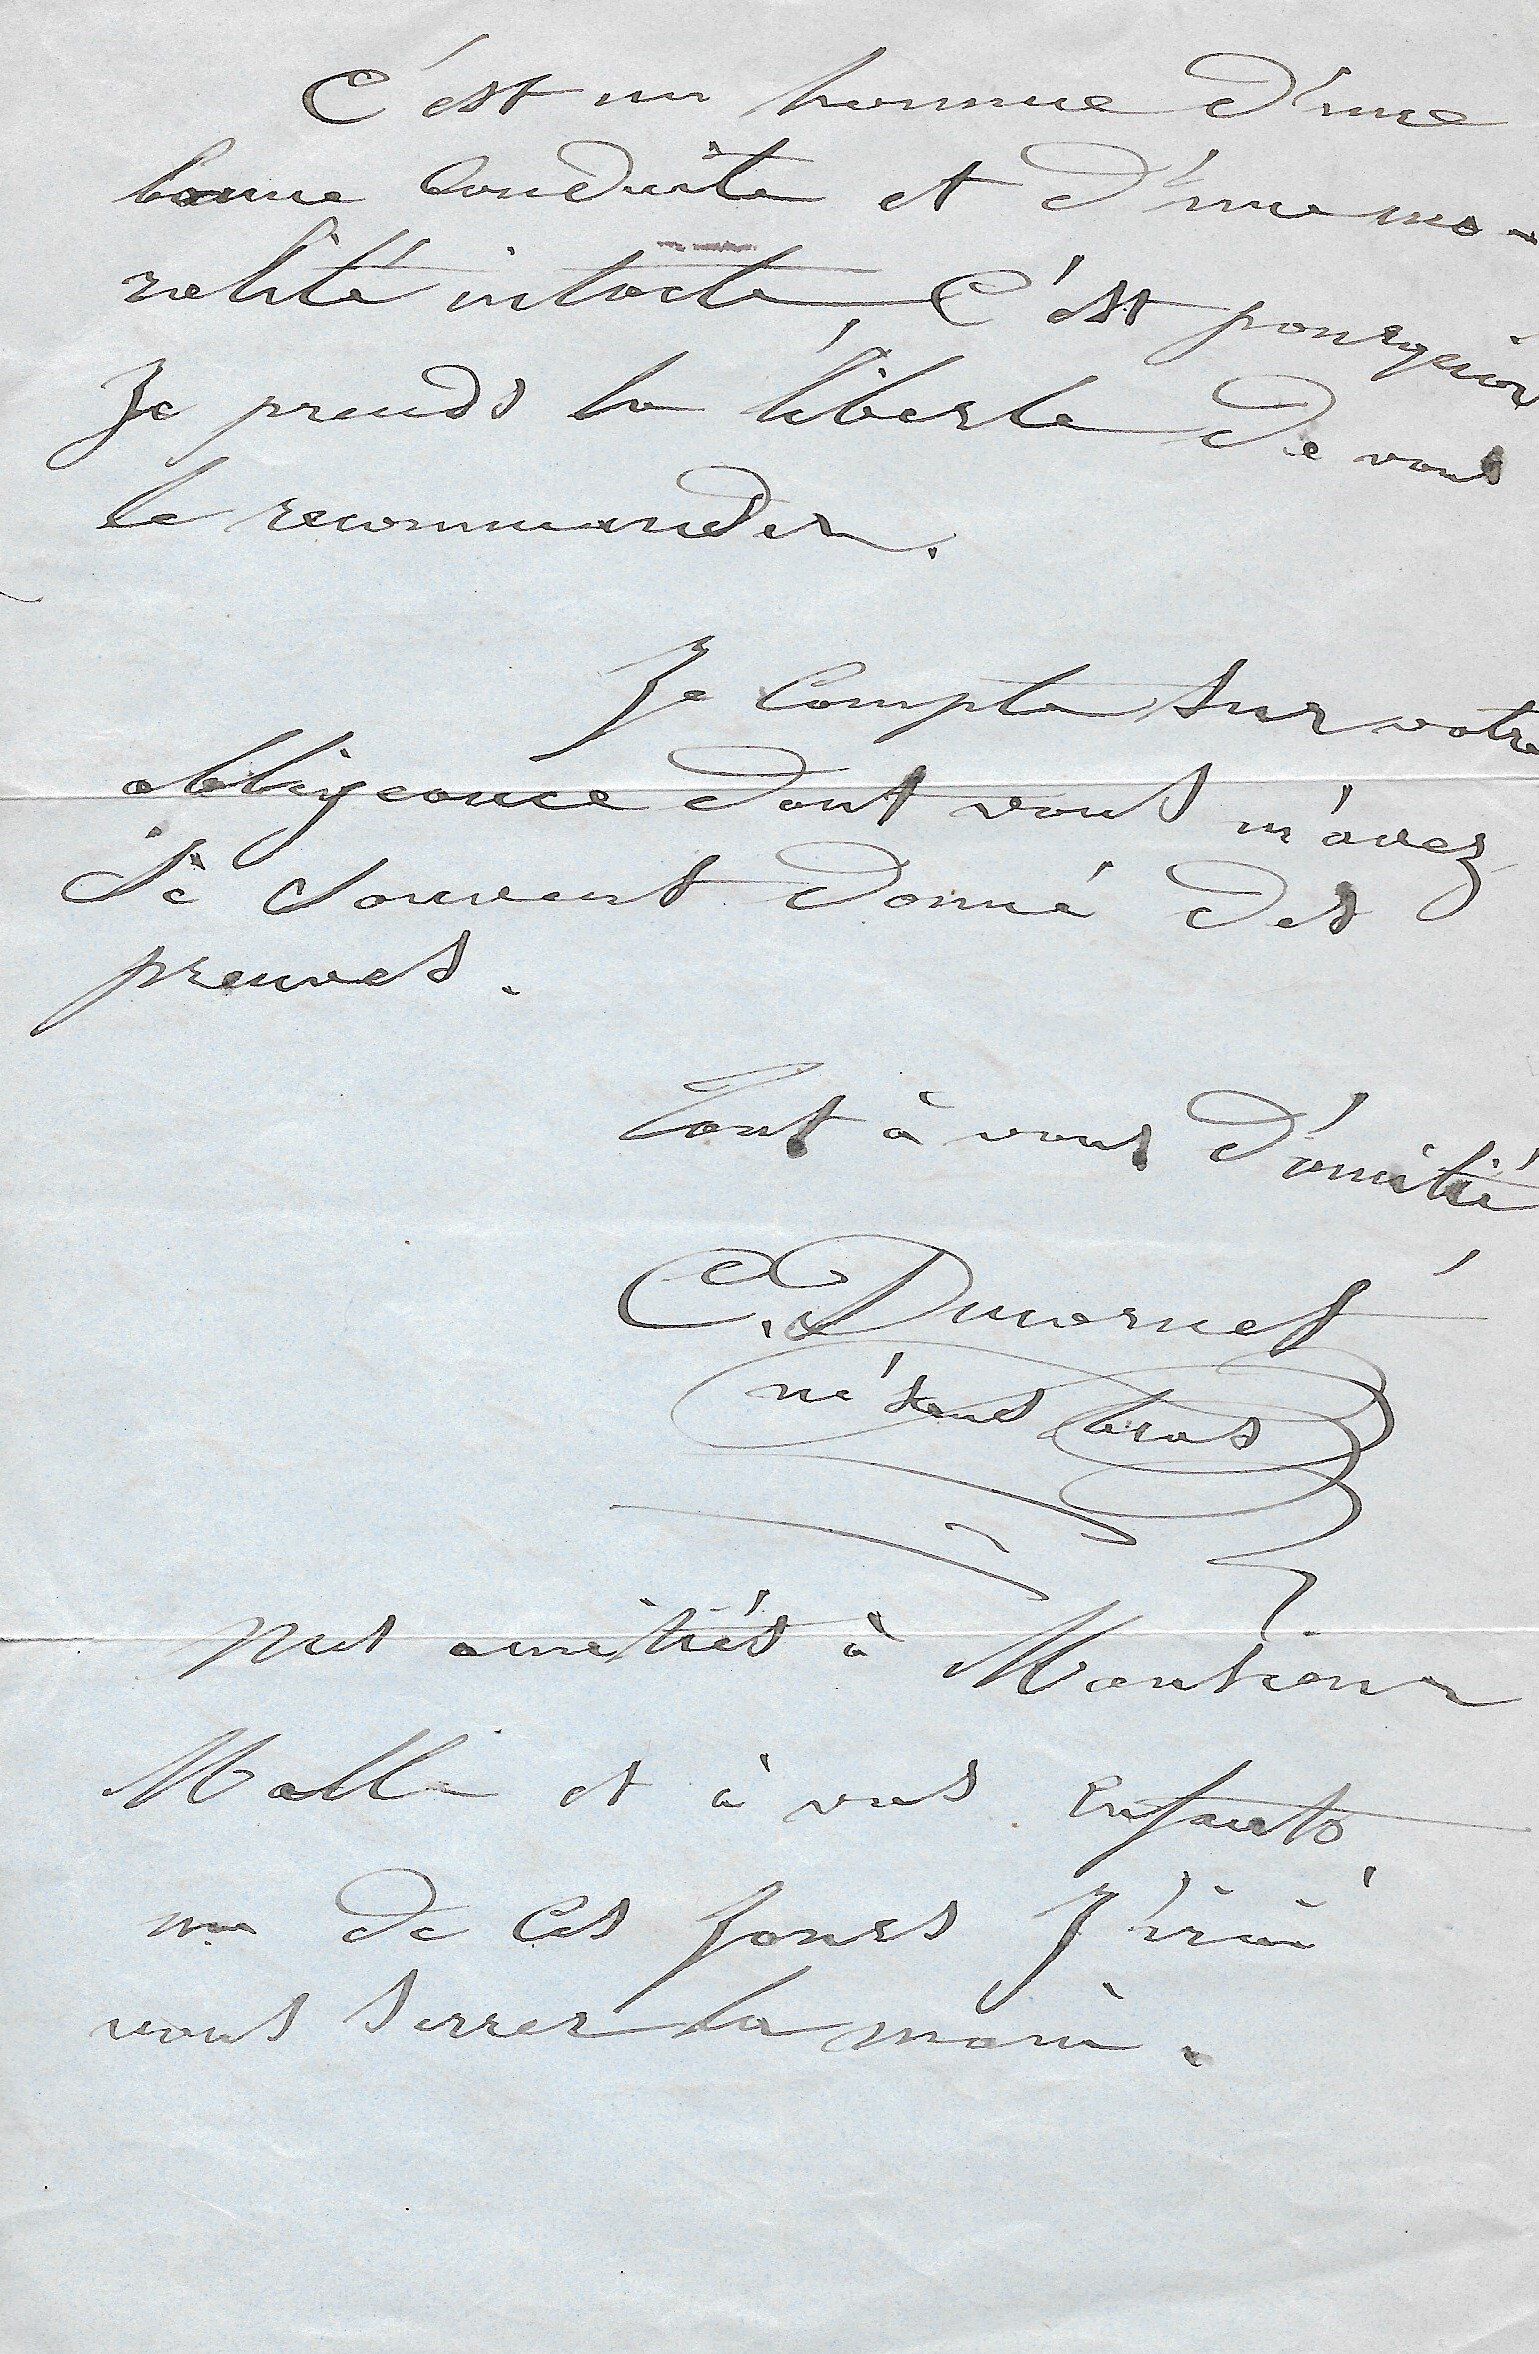 C'est un homme d'une
bonne Conduite et d'une mo-
ralité intacte, C'est pourquoi
Je prends la liberté de vous
le recommander.
Je Compte sur votre
obligeance dont vous m'avez
si souvent donné des
preuves.
Tout à vous d'amitié
C. Ducornet
né sans bras
mes amitiés à Monsieur
et à vos enfants,
un de ces Jours J'irai
vous serrer la main.